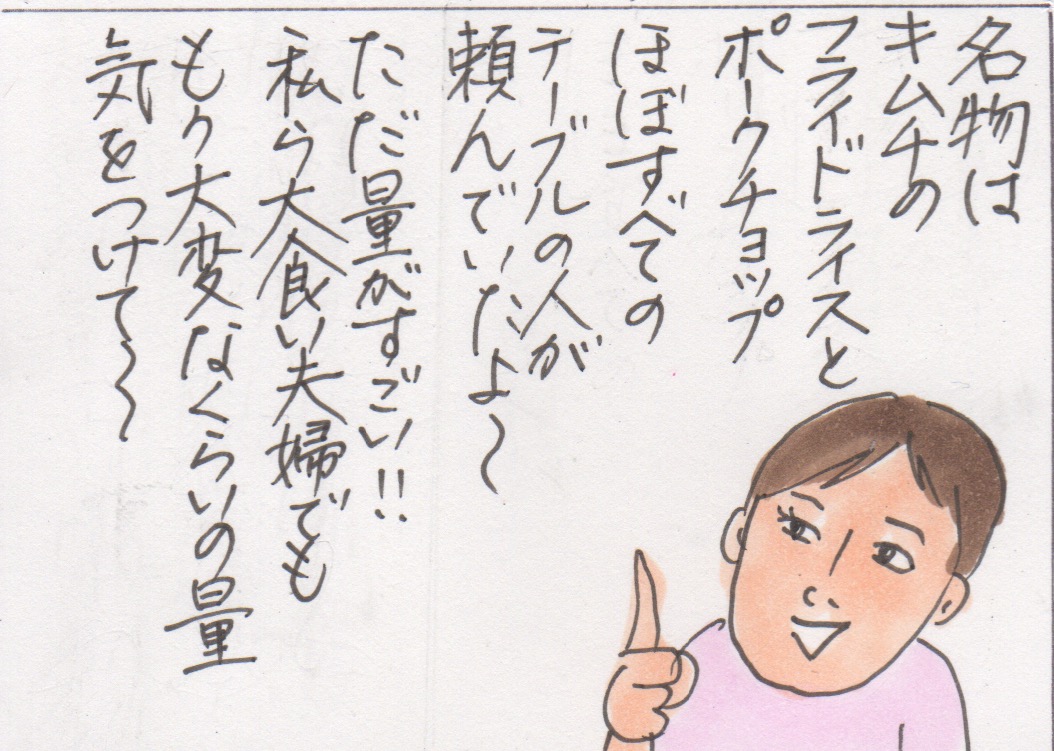 名物は
キムチの
フライドライスと
ポークチョップ
ほぼすべての
テーブルの人が
頼んでいたよ〜
ただ量がすごい!!
私ら大食い夫婦でも
もう大変なくらいの量
気をつけて〜〜